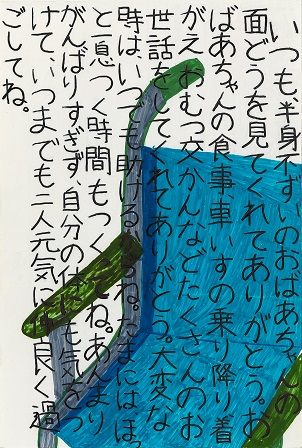 いつも半身不ずいのおばあちゃんの
面どうを見てくれてありがとう。お
ばあちゃんの食事、車いすの乗り降り、着
がえ、おむつ交かんなどたくさんのお
世話をしてくれてありがとう。大変な
時は、いつでも助けるからね。たまにはほっ
と一息つく時間もつくってね。あんまり
がんばりすぎず、自分の体にも気をつ
けて、いつまでも二人元気に仲良く過
ごしてね。